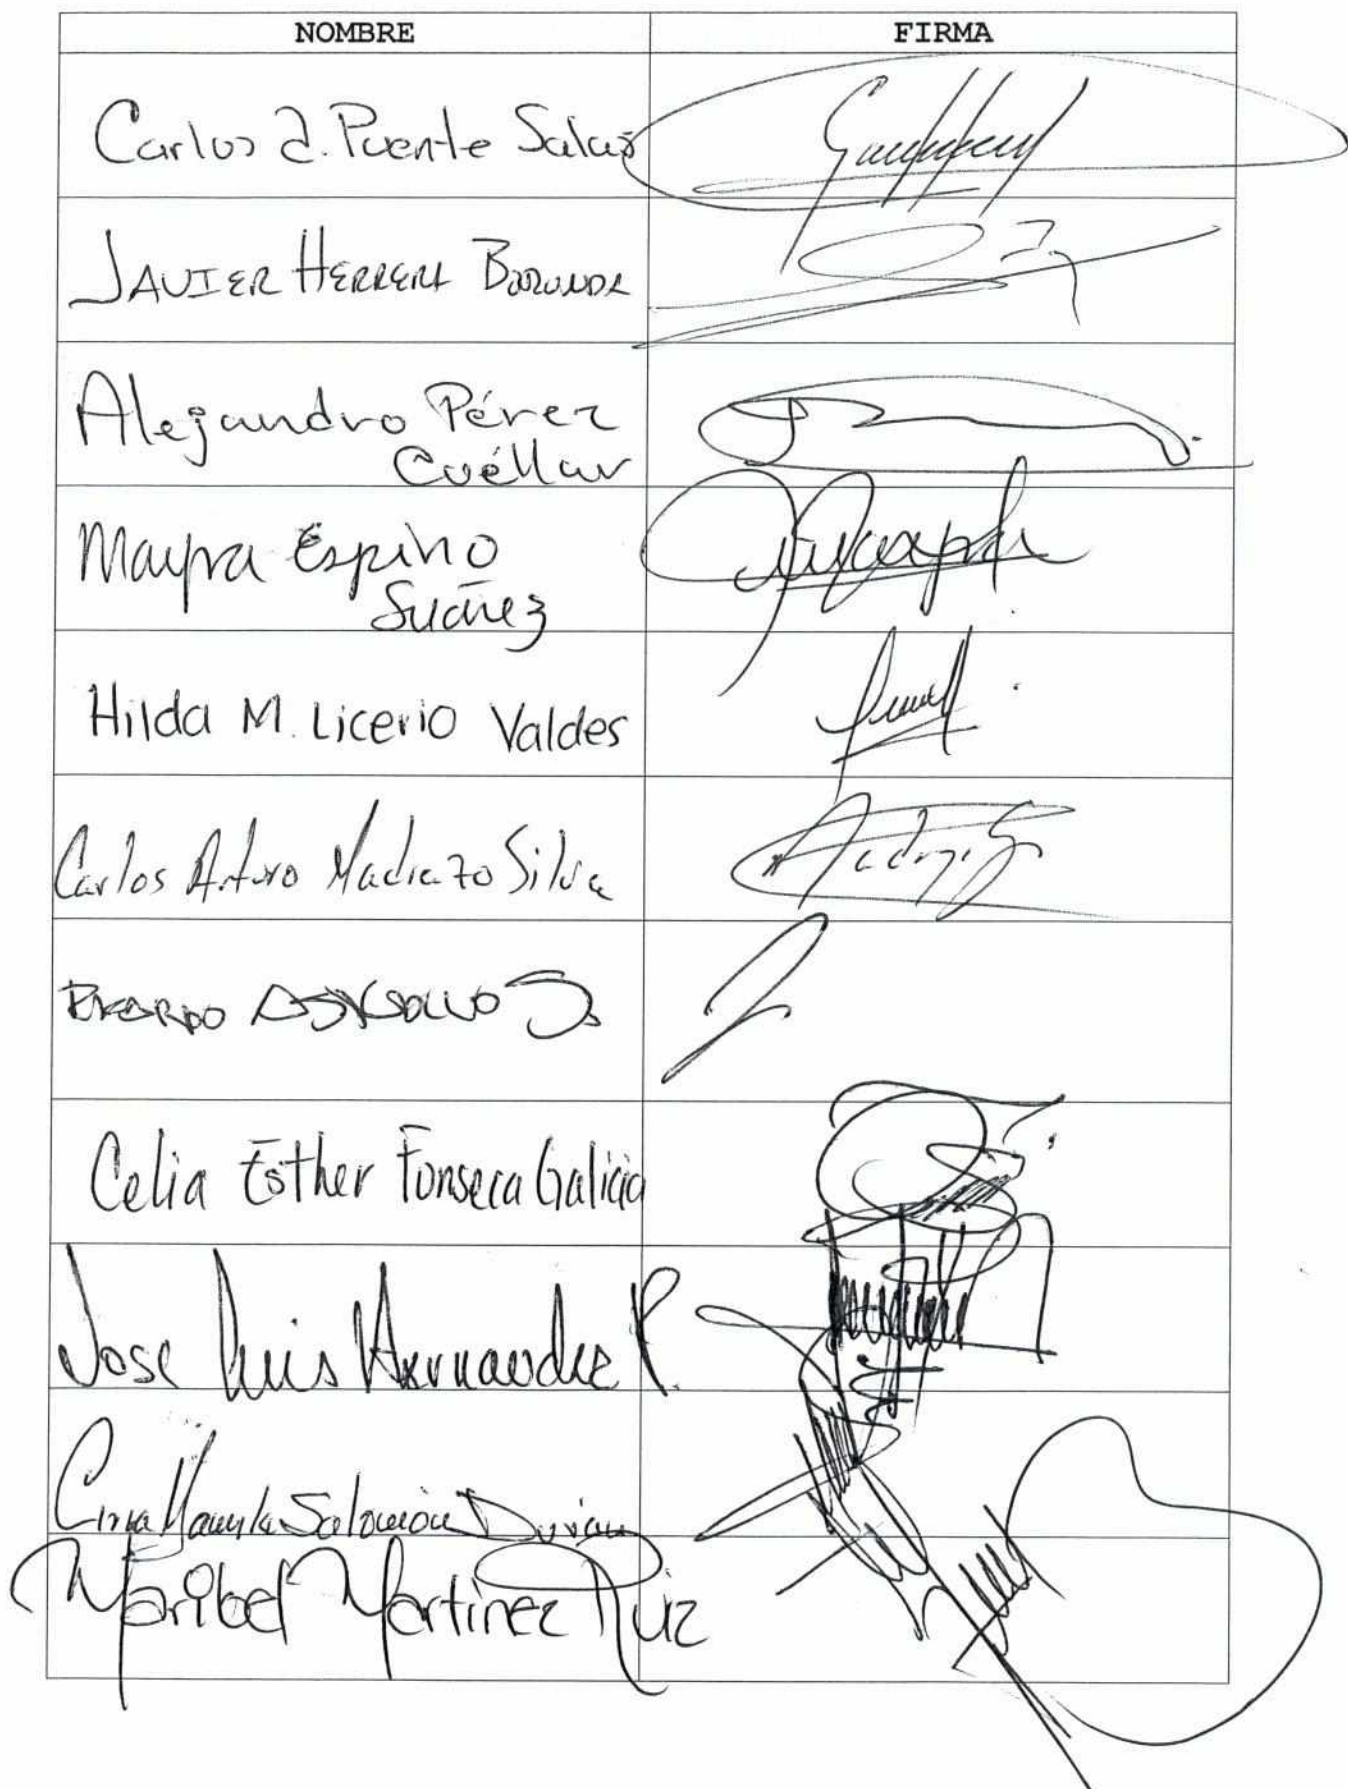 NOMBRE FIRMA
Carlos A. Puente Salas
JAVIER HERRERA BORUNDA
Alejandro Pérez
Cuéllar
Mayra Espino
Suárez
Hilda M. Licerio Valdes
Carlos Arturo Madrazo Silva
RICARDO J.
Celia Esther Fonseca Galicia
Jose Luis Hernandez P.
Salomón Durán
Maribel Martinez Ruiz